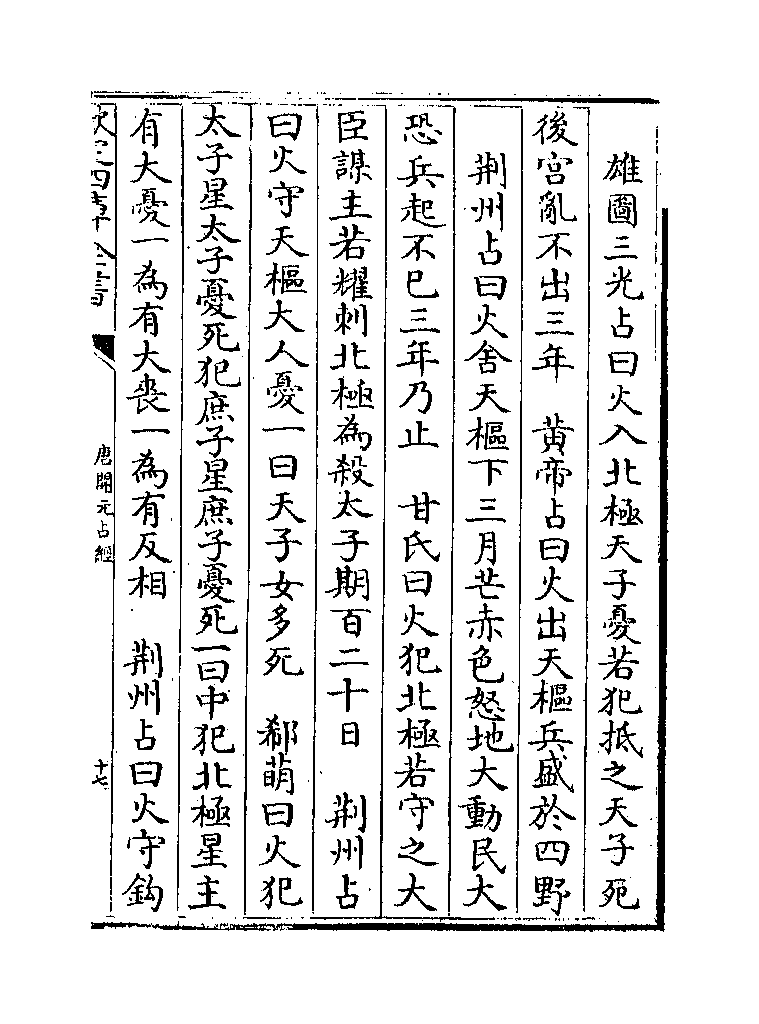 雄圖三光占曰火入北極天子憂若犯抵之天子死
後宫亂不出三年　黄帝占曰火出天樞兵盛於四野
荆州占曰火舍天樞下三月芒赤色怒地大動民大
恐兵起不已三年乃止　甘氏曰火犯北極若守之大
臣謀主若耀刺北極為殺太子期百二十日　荆州占
曰火守天樞大人憂一曰天子女多死　郗萌曰火犯
太子星太子憂死犯庶子星庶子憂死一曰中犯北極星主
有大憂一為有大喪一為有反相　荆州占曰火守鈎
欽定四庫全書
唐開元占經
十七